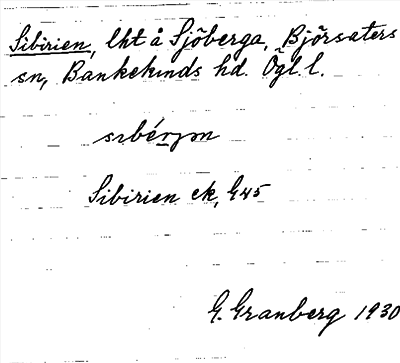 Sibirien, lht å Sjöberga, Björsäters
sn, Bankekinds hd. Ögl. l.
Sibirien ek, G45
G. Granberg 1930